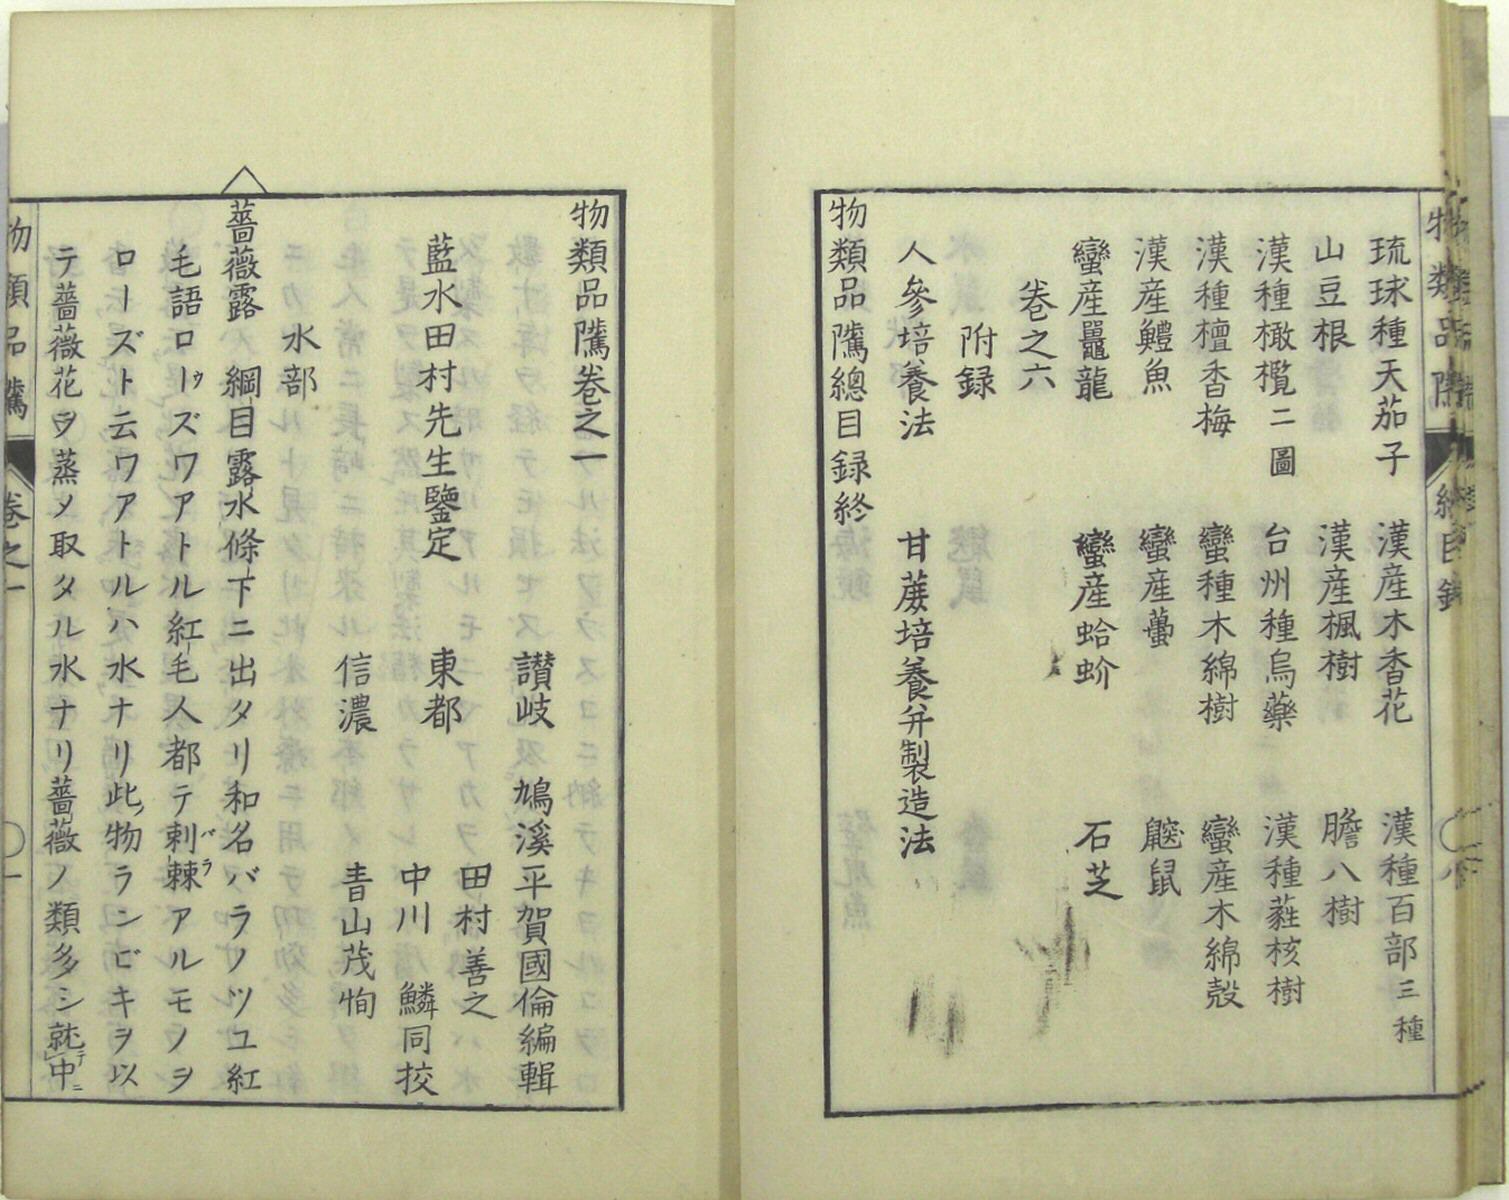 琉球種天茄子 漢産木香花 漢種百部三種
山豆根 漢産楓樹 膽八樹
漢種橄欖二圖 台州種烏藥 漢種蕤核樹
漢種檀香梅 蠻種木綿樹 蠻産木綿殼
漢産鱧魚 蠻産蠆 鼴鼠
蠻産鼉龍 蠻産蛤蚧 石芝
卷之六
附録
人參培養法 甘蔗培養并製造法
物類品隲總目録終
物類品隲卷之一
讃岐 鳩溪平賀國倫編輯
田村善之
藍水田村先生鑒定 東都
中川 鱗同挍
信濃 青山茂恂
水部
薔薇露 綱目露水條下ニ出タリ和名バラノツユ紅
毛語ローズワアトル紅毛人都テ刺棘アルモノヲ
ローズト云ワアトルハ水ナリ此物ランビキヲ以
テ薔薇花ヲ蒸メ取タル水ナリ薔薇ノ類多シ就中
物類品隲 卷之一 一